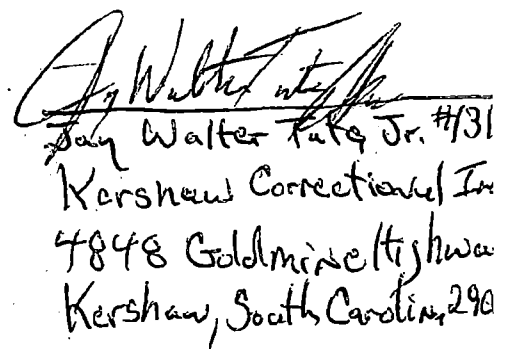 Jay Walter Tate Jr.
Jay Walter Tate, Jr. #131
Kershaw Correctional In
4848 Goldmine Highwa
Kershaw, South Carolina 290